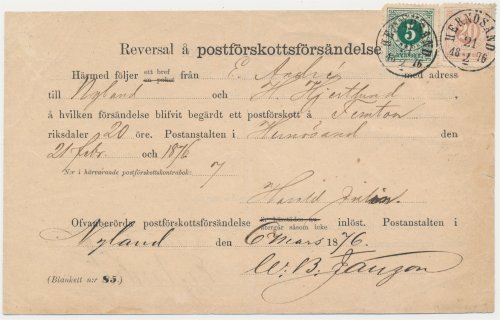 HERNÖSAND
21
2
1876
5
HERNÖSAND
21
2
1876
20
Reversal å postförskottsförsändelse
Härmed följer ett bref från E. André med adress
en paket
till Nyland och H. Hjertlund
å hvilken försändelse blifvit begärdt ett postförskott å Femton
riksdaler 20 öre. Postanstalten i Hernösand den
21 Febr. och 1876
N:r i härvarande postförskottskontrabok: 7
Harald
Ofvanberörda postförskottsförsändelse inlöst. Postanstalten i
återgår såsom icke
Nyland den 6 Mars 1876.
W. B. Janzon
(Blankett n:r 85.)